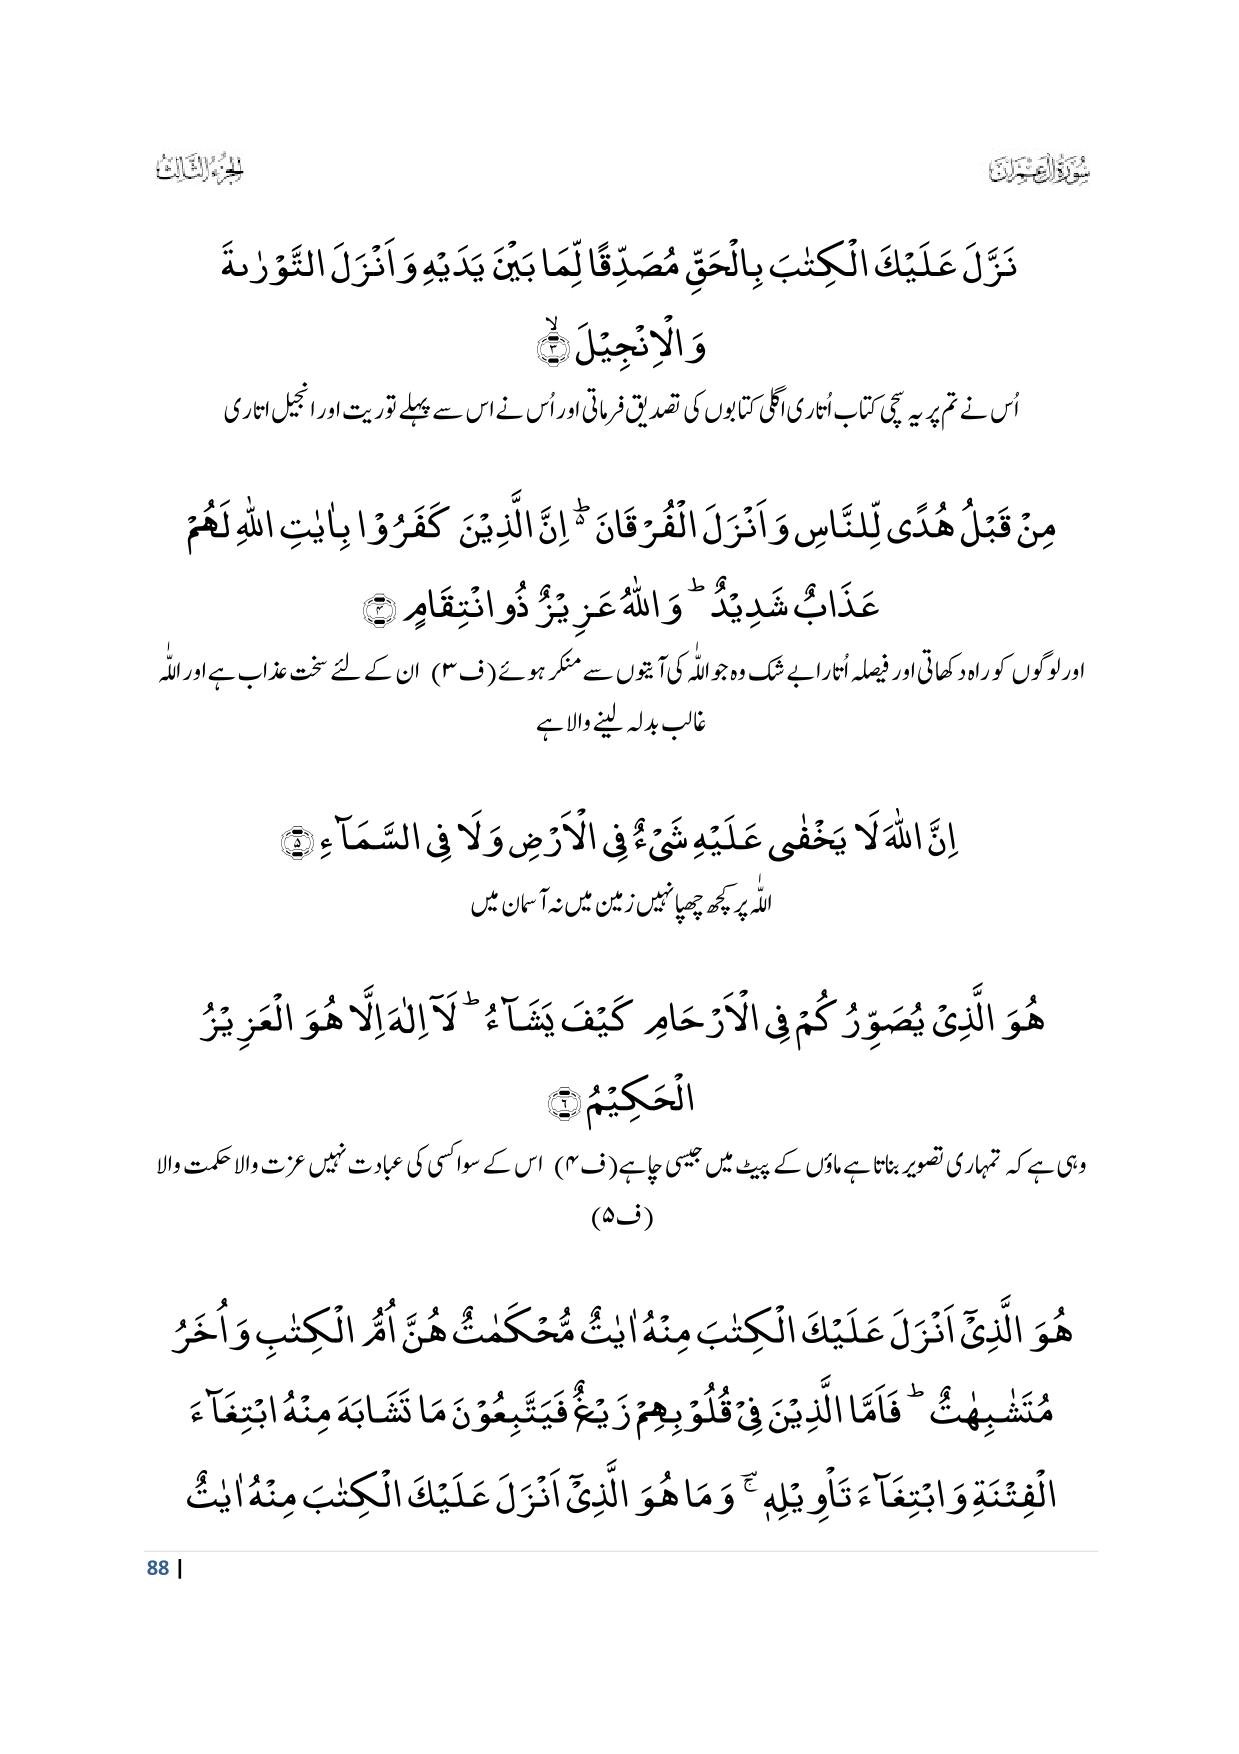 سُوۡرَۃُ اٰلِ عِمْرَان
الجزء الثالث
نَزَّلَ عَلَيْكَ الْكِتٰبَ بِالْحَقِّ مُصَدِّقًا لِّمَا بَيْنَ يَدَيْهِ وَ اَنْزَلَ التَّوْرٰىةَ
وَ الْاِنْجِيْلَ ۙ﴿۳﴾
اُس نے تم پر یہ سچی کتاب اُتاری اگلی کتابوں کی تصدیق فرماتی اور اُس نے اس سے پہلے توریت اور انجیل اتاری
مِنْ قَبْلُ هُدًى لِّلنَّاسِ وَ اَنْزَلَ الْفُرْقَانَ ۬ؕ اِنَّ الَّذِيْنَ كَفَرُوْا بِاٰيٰتِ اللّٰهِ لَهُمْ
عَذَابٌ شَدِيْدٌ ؕ وَ اللّٰهُ عَزِيْزٌ ذُو انْتِقَامٍ ﴿۴﴾
اور لوگوں کو راہ دکھاتی اور فیصلہ اُتارا بے شک وہ جو اللّٰہ کی آیتوں سے منکر ہوئے (ف۳) ان کے لئے سخت عذاب ہے اور اللّٰہ
غالب بدلہ لینے والا ہے
اِنَّ اللّٰهَ لَا يَخْفٰى عَلَيْهِ شَيْءٌ فِى الْاَرْضِ وَ لَا فِى السَّمَآءِ ﴿۵﴾
اللّٰہ پر کچھ چھپا نہیں زمین میں نہ آسمان میں
هُوَ الَّذِيْ يُصَوِّرُكُمْ فِى الْاَرْحَامِ كَيْفَ يَشَآءُ ؕ لَاۤ اِلٰهَ اِلَّا هُوَ الْعَزِيْزُ
الْحَكِيْمُ ﴿۶﴾
وہی ہے کہ تمہاری تصویر بناتا ہے ماؤں کے پیٹ میں جیسی چاہے (ف۴) اس کے سوا کسی کی عبادت نہیں عزت والا حکمت والا
(ف۵)
هُوَ الَّذِيْۤ اَنْزَلَ عَلَيْكَ الْكِتٰبَ مِنْهُ اٰيٰتٌ مُّحْكَمٰتٌ هُنَّ اُمُّ الْكِتٰبِ وَ اُخَرُ
مُتَشٰبِهٰتٌ ؕ فَاَمَّا الَّذِيْنَ فِيْ قُلُوْبِهِمْ زَيْغٌ فَيَتَّبِعُوْنَ مَا تَشَابَهَ مِنْهُ ابْتِغَآءَ
الْفِتْنَةِ وَ ابْتِغَآءَ تَاْوِيْلِهٖ ۚ۬ وَ مَا هُوَ الَّذِيْۤ اَنْزَلَ عَلَيْكَ الْكِتٰبَ مِنْهُ اٰيٰتٌ
88 |